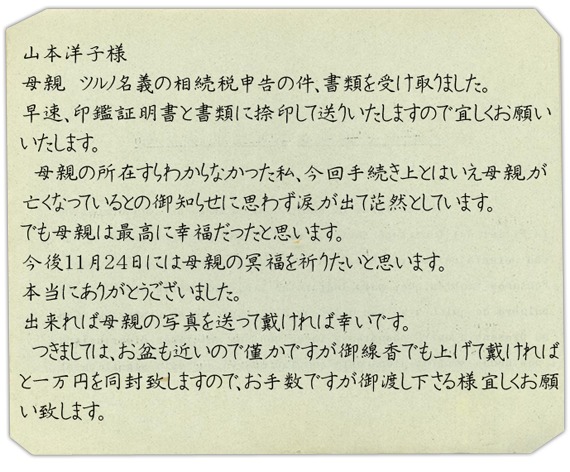 山本洋子様
母親 ツルノ名義の相続税申告の件、書類を受け取りました。
早速、印鑑証明書と書類に捺印して送りいたしますので宜しくお願い
いたします。
母親の所在すらわからなかった私、今回手続き上とはいえ母親が
亡くなっているとの御知らせに思わず涙が出て茫然としています。
でも母親は最高に幸福だったと思います。
今後11月24日には母親の冥福を祈りたいと思います。
本当にありがとうございました。
出来れば母親の写真を送って戴ければ幸いです。
つきましては、お盆も近いので僅かですが御線香でも上げて戴ければ
と一万円を同封致しますので、お手数ですが御渡し下さる様宜しくお願
い致します。